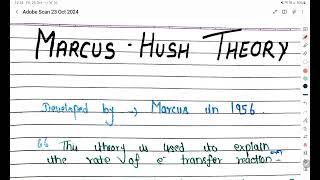 Adobe Scan 23 Oct 2024
MARCUS - HUSH THEORY
Developed by → Marcus in 1956.
“ This theory is used to explain
the rate of e⁻ transfer reaction